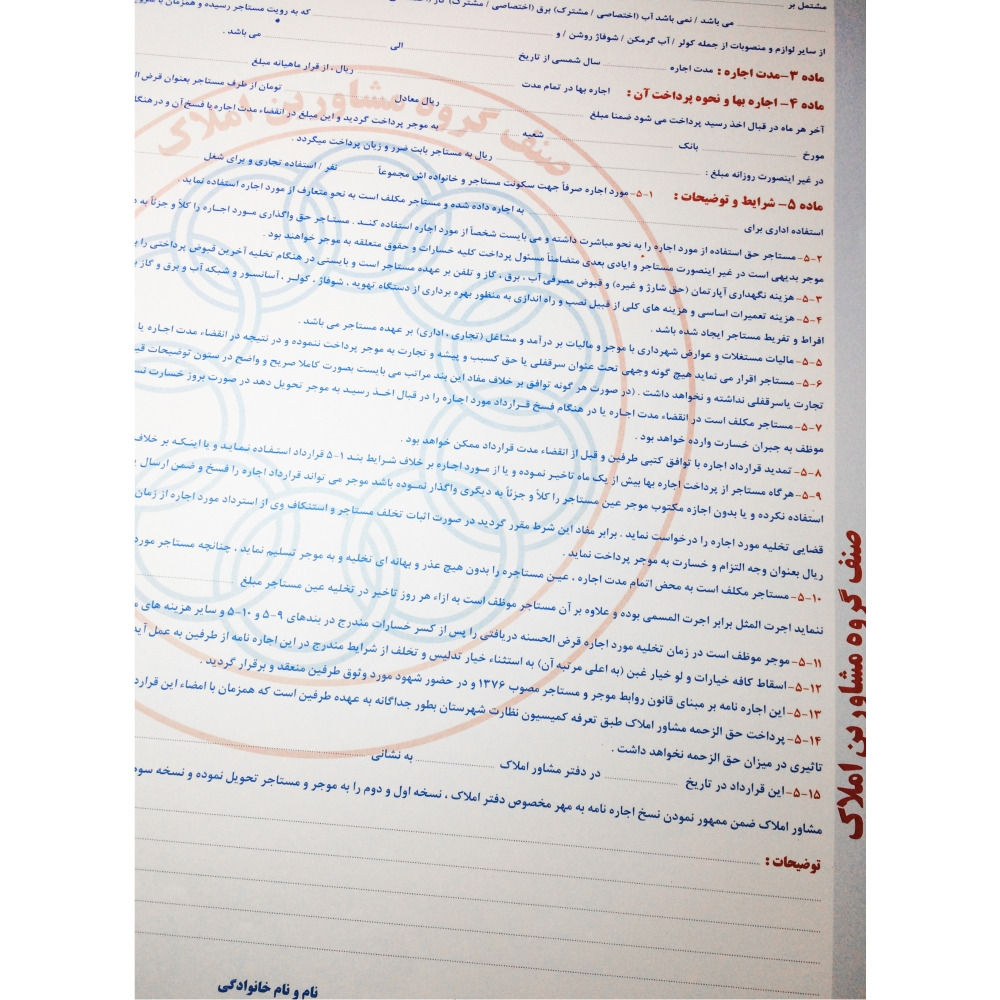 مشتمل بر
می باشد / نمی باشد آب (اختصاصی / مشترک) برق (اختصاصی / مشترک) گاز
از سایر لوازم و منصوبات از جمله کولر / آب گرمکن / شوفاژ روشن / و
که به رویت مستاجر رسیده و همزمان با
ماده ۳- مدت اجاره : مدت اجاره سال شمسی از تاریخ الی می باشد .
ماده ۴- اجاره بها و نحوه پرداخت آن : اجاره بها در تمام مدت ریال ، از قرار ماهیانه مبلغ
آخر هر ماه در قبال اخذ رسید پرداخت می شود ضمنا مبلغ ریال معادل تومان از طرف مستاجر بعنوان قرض
مورخ بانک شعبه به موجر پرداخت گردید و این مبلغ در انقضاء مدت اجاره یا فسخ آن و در هنگام
در غیر اینصورت روزانه مبلغ : ریال به مستاجر بابت ضرر و زیان پرداخت میگردد .
ماده ۵- شرایط و توضیحات : ۵-۱- مورد اجاره صرفاً جهت سکونت مستاجر و خانواده اش مجموعاً نفر / استفاده تجاری و برای شغل
استفاده اداری برای به اجاره داده شده و مستاجر مکلف است به نحو متعارف از مورد اجاره استفاده نماید .
۵-۲- مستاجر حق استفاده از مورد اجاره را به نحو مباشرت داشته و می بایست شخصاً از مورد اجاره استفاده کند . مستاجر حق واگذاری مورد اجاره را کلاً و جزئاً به
موجر بدیهی است در غیر اینصورت مستاجر و ایادی بعدی متضامناً مسئول پرداخت کلیه خسارات و حقوق متعلقه به موجر خواهند بود .
۵-۳- هزینه نگهداری آپارتمان (حق شارژ و غیره) و قبوض مصرفی آب ، برق ، گاز و تلفن بر عهده مستاجر است و بایستی در هنگام تخلیه آخرین قبوض پرداختی را
۵-۴- هزینه تعمیرات اساسی و هزینه های کلی از قبیل نصب و راه اندازی به منظور بهره برداری از دستگاه تهویه ، شوفاژ ، کولر ، آسانسور و شبکه آب و برق و گاز
افراط و تفریط مستاجر ایجاد شده باشد .
۵-۵- مالیات مستغلات و عوارض شهرداری با موجر و مالیات بر درآمد و مشاغل (تجاری ، اداری) بر عهده مستاجر می باشد .
۵-۶- مستاجر اقرار می نماید هیچ گونه وجهی تحت عنوان سرقفلی یا حق کسب و پیشه و تجارت به موجر پرداخت ننموده و در نتیجه در انقضاء مدت اجاره یا
تجارت یاسرقفلی نداشته و نخواهد داشت . (در صورت هر گونه توافق بر خلاف مفاد این بند مراتب می بایست بصورت کاملا صریح و واضح در ستون توضیحات
۵-۷- مستاجر مکلف است در انقضاء مدت اجاره یا در هنگام فسخ قرارداد مورد اجاره را در قبال اخذ رسید به موجر تحویل دهد در صورت بروز خسارت
موظف به جبران خسارت وارده خواهد بود .
۵-۸- تمدید قرارداد اجاره با توافق کتبی طرفین و قبل از انقضاء مدت قرارداد ممکن خواهد بود .
۵-۹- هرگاه مستاجر از پرداخت اجاره بها بیش از یک ماه تاخیر نموده و یا از مورد اجاره بر خلاف شرایط بند ۱-۵ قرارداد استفاده نماید و یا اینکه بر خلاف
استفاده نکرده و یا بدون اجازه مکتوب موجر عین مستاجر را کلاً و جزئاً به دیگری واگذار نموده باشد موجر می تواند قرارداد اجاره را فسخ و ضمن ارسال
قضایی تخلیه مورد اجاره را درخواست نماید . برابر مفاد این شرط مقرر گردید در صورت اثبات تخلف مستاجر و استنکاف وی از استرداد مورد اجاره از زمان
ریال بعنوان وجه التزام و خسارت به موجر پرداخت نماید .
۵-۱۰- مستاجر مکلف است به محض اتمام مدت اجاره ، عین مستاجره را بدون هیچ عذر و بهانه ای تخلیه و به موجر تسلیم نماید ، چنانچه مستاجر مورد
ننماید اجرت المثل برابر اجرت المسمی بوده و علاوه بر آن مستاجر موظف است به ازاء هر روز تاخیر در تخلیه عین مستاجر مبلغ
۵-۱۱- موجر موظف است در زمان تخلیه مورد اجاره قرض الحسنه دریافتی را پس از کسر خسارات مندرج در بندهای ۹-۵ و ۱۰-۵ و سایر هزینه های
۵-۱۲- اسقاط کافه خیارات و لو خیار غبن (به اعلی مرتبه آن) به استثناء خیار تدلیس و تخلف از شرایط مندرج در این اجاره نامه از طرفین به عمل
۵-۱۳- این اجاره نامه بر مبنای قانون روابط موجر و مستاجر مصوب ۱۳۷۶ و در حضور شهود مورد وثوق طرفین منعقد و برقرار گردید .
۵-۱۴- پرداخت حق الزحمه مشاور املاک طبق تعرفه کمیسیون نظارت شهرستان بطور جداگانه به عهده طرفین است که همزمان با امضاء این
تاثیری در میزان حق الزحمه نخواهد داشت .
۵-۱۵- این قرارداد در تاریخ در دفتر مشاور املاک به نشانی
مشاور املاک ضمن ممهور نمودن نسخ اجاره نامه به مهر مخصوص دفتر املاک ، نسخه اول و دوم را به موجر و مستاجر تحویل نموده و نسخه سوم
توضیحات :
نام و نام خانوادگی
صنف گروه مشاورین املاک
صنف گروه مشاورین املاک